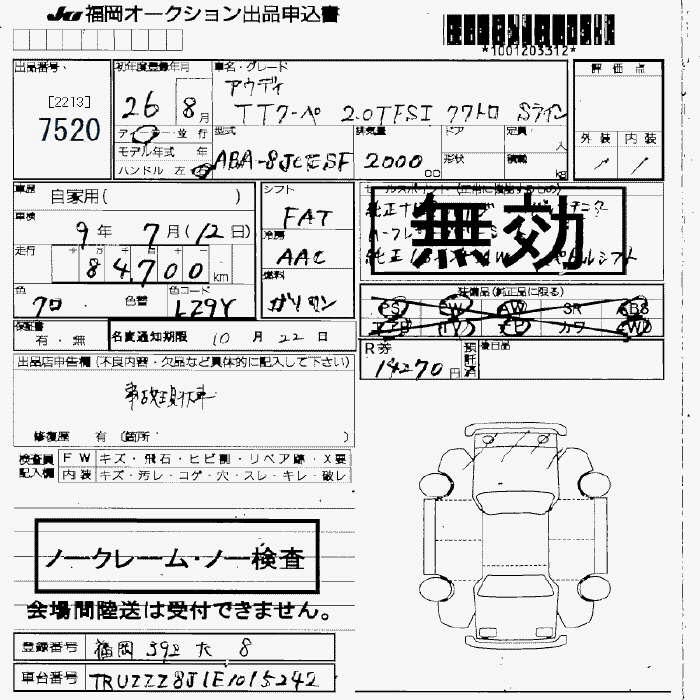 JU 福岡オークション出品申込書
*1001203312*
出品番号
[2213]
7520
初年度登録年月
26 8月
車名・グレード
アウディ
TTクーペ 2.0TFSI クワトロ Sライン
ディーラー・並行
モデル年式 年
ハンドル 左 右
型式
ABA-8JCESF
排気量
2000 cc
ドア
形状
定員 人
積載 kg
評価点
外装 内装
／ ／
車歴
自家用( )
車検
9年 7月(12日)
走行
84,700 km
色
クロ
色替
色コード
LZ9Y
シフト
FAT
冷房
AAC
燃料
ガソリン
セールスポイント (正常に機能するもの)
無効
パドルシフト
装備品(純正品に限る)
PS SW AW SR ABS
エアB TV ナビ カワ PW
保証書
有・無
名変通知期限 10月22日
R券
14270円
預託済
後日品
出品店申告欄(不良内容・欠品など具体的に記入して下さい)
事故現状車
修復歴 有(箇所 )
検査員記入欄
FW キズ・飛石・ヒビ割・リペア跡・X要
内装 キズ・汚レ・コゲ・穴・スレ・キレ・破レ
ノークレーム・ノー検査
会場間陸送は受付できません。
登録番号 福岡 392 た 8
車台番号 TRUZZZ8J1E1015242